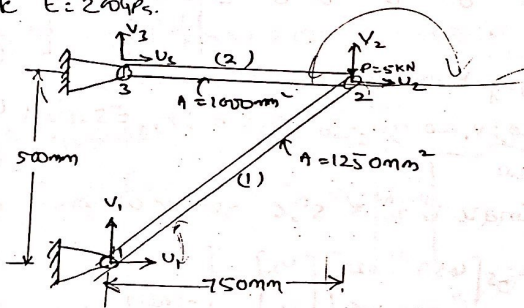 E=200GPa.
V3
U3
(2)
V2
P=5KN
U2
3
2
A=1000mm²
500mm
A=1250mm²
(1)
V1
U1
750mm